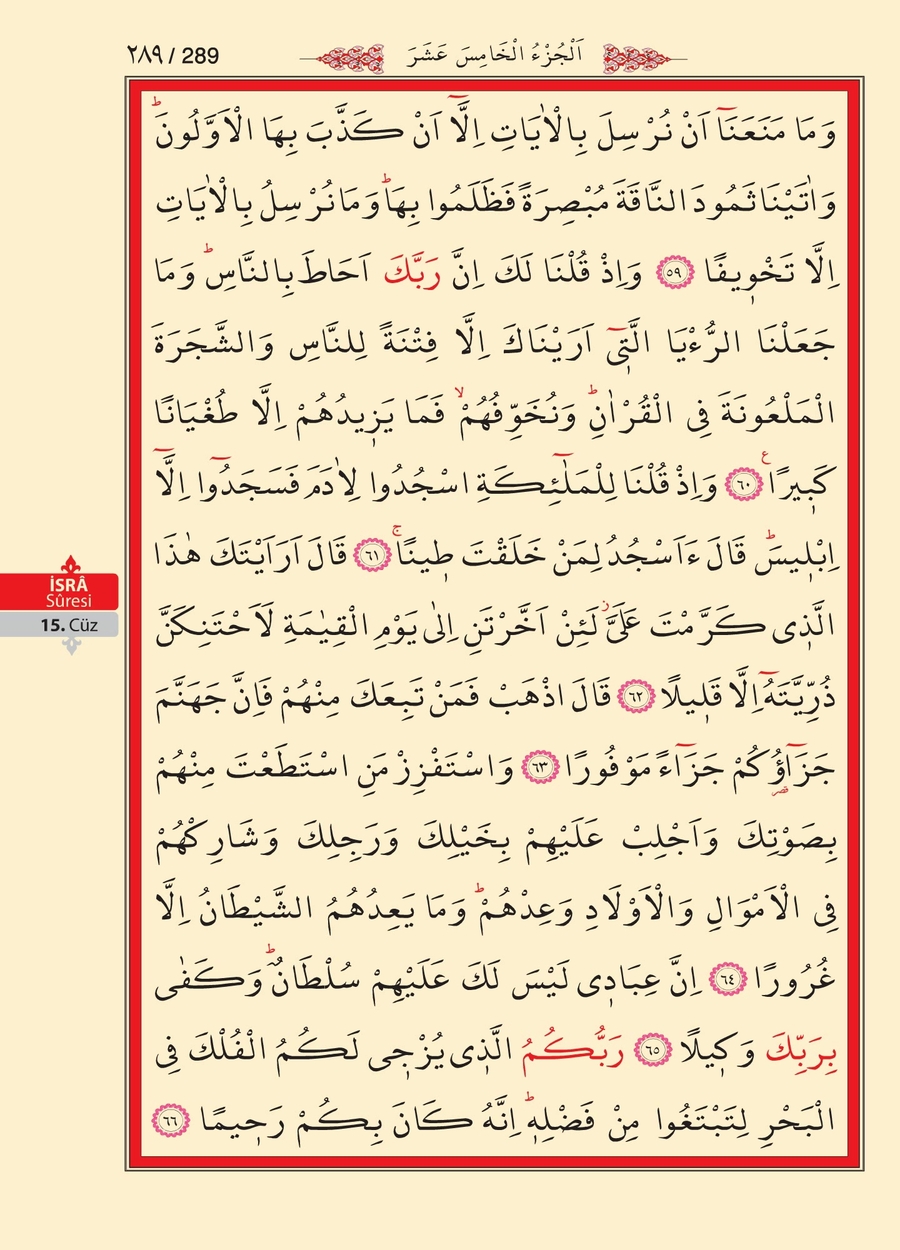 ٢٨٩ / 289
اَلْجُزْءُ الْخَامِسَ عَشَرَ
وَمَا مَنَعَنَٓا اَنْ نُرْسِلَ بِالْاٰيَاتِ اِلَّٓا اَنْ كَذَّبَ بِهَا الْاَوَّلُونَۜ
وَاٰتَيْنَا ثَمُودَ النَّاقَةَ مُبْصِرَةً فَظَلَمُوا بِهَاۜ وَمَا نُرْسِلُ بِالْاٰيَاتِ
اِلَّا تَخْوٖيفًا ﴿٥٩﴾ وَاِذْ قُلْنَا لَكَ اِنَّ رَبَّكَ اَحَاطَ بِالنَّاسِۜ وَمَا
جَعَلْنَا الرُّءْيَا الَّتٖٓى اَرَيْنَاكَ اِلَّا فِتْنَةً لِلنَّاسِ وَالشَّجَرَةَ
الْمَلْعُونَةَ فِى الْقُرْاٰنِۜ وَنُخَوِّفُهُمْۙ فَمَا يَزٖيدُهُمْ اِلَّا طُغْيَانًا
كَبٖيرًا ع ﴿٦٠﴾ وَاِذْ قُلْنَا لِلْمَلٰٓئِكَةِ اسْجُدُوا لِاٰدَمَ فَسَجَدُٓوا اِلَّٓا
اِبْلٖيسَۜ قَالَ ءَاَسْجُدُ لِمَنْ خَلَقْتَ طٖينًاۚ ﴿٦١﴾ قَالَ اَرَاَيْتَكَ هٰذَا
الَّذٖى كَرَّمْتَ عَلَىَّؗ لَئِنْ اَخَّرْتَنِ اِلٰى يَوْمِ الْقِيٰمَةِ لَاَحْتَنِكَنَّ
ذُرِّيَّتَهُٓ اِلَّا قَلٖيلًا ﴿٦٢﴾ قَالَ اذْهَبْ فَمَنْ تَبِعَكَ مِنْهُمْ فَاِنَّ جَهَنَّمَ
جَزَٓاؤُ۬كُمْ جَزَٓاءً مَوْفُورًا ﴿٦٣﴾ وَاسْتَفْزِزْ مَنِ اسْتَطَعْتَ مِنْهُمْ
بِصَوْتِكَ وَاَجْلِبْ عَلَيْهِمْ بِخَيْلِكَ وَرَجِلِكَ وَشَارِكْهُمْ
فِى الْاَمْوَالِ وَالْاَوْلَادِ وَعِدْهُمْۜ وَمَا يَعِدُهُمُ الشَّيْطَانُ اِلَّا
غُرُورًا ﴿٦٤﴾ اِنَّ عِبَادٖى لَيْسَ لَكَ عَلَيْهِمْ سُلْطَانٌۜ وَكَفٰى
بِرَبِّكَ وَكٖيلًا ﴿٦٥﴾ رَبُّكُمُ الَّذٖى يُزْجٖى لَكُمُ الْفُلْكَ فِى
الْبَحْرِ لِتَبْتَغُوا مِنْ فَضْلِهٖۜ اِنَّهُ كَانَ بِكُمْ رَحٖيمًا ﴿٦٦﴾
İSRÂ
Sûresi
15. Cüz